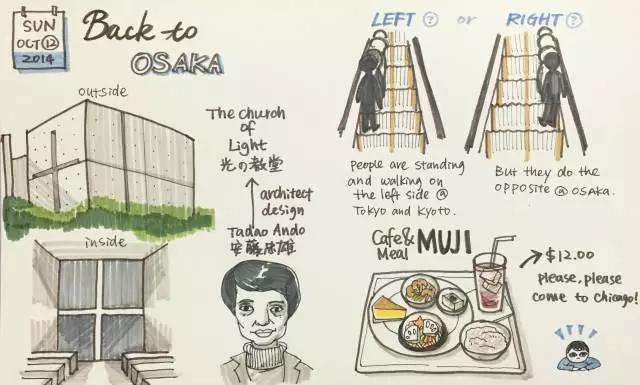 SUN
OCT 12
2014
Back to
OSAKA
outside
The church
of
Light
光の教堂
architect
design
Tadao Ando
安藤忠雄
inside
LEFT ? or RIGHT ?
People are standing
and walking on
the left side @
Tokyo and Kyoto.
But they do the
opposite @ OSAKA.
Cafe&
Meal MUJI
$12.00
please, please
come to chicago!